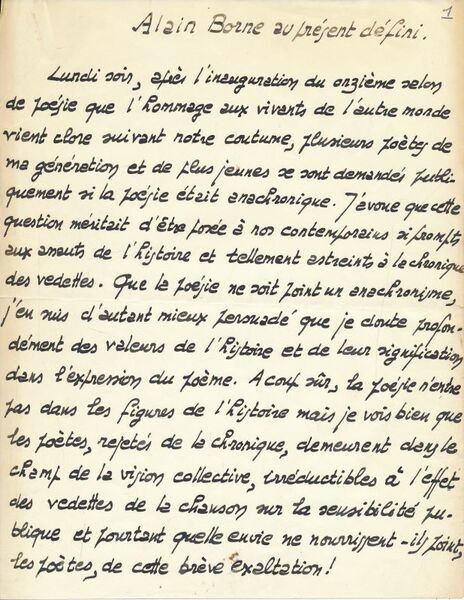 1
Alain Borne au présent défini.
Lundi soir, après l'inauguration du onzième salon
de poésie que l'hommage aux vivants de l'autre monde
vient clore suivant notre coutume, plusieurs poètes de
ma génération et de plus jeunes se sont demandés publi-
quement si la poésie était anachronique. J'avoue que cette
question méritait d'être posée à nos contemporains si prompts
aux amauts de l'histoire et tellement astreints à la chronique
des vedettes. Que la poésie ne soit point un anachronisme,
j'en suis d'autant mieux persuadé que je doute profon-
dément des valeurs de l'histoire et de leur signification
dans l'expression du poème. A coup sûr, la poésie n'entre
pas dans les figures de l'histoire mais je vois bien que
les poètes, rejetés de la chronique, demeurent dans le
champ de la vision collective, irréductibles à l'effet
des vedettes de la chanson sur la sensibilité pu-
blique et pourtant quelle envie ne nourrissent-ils point,
les poètes, de cette brève exaltation !